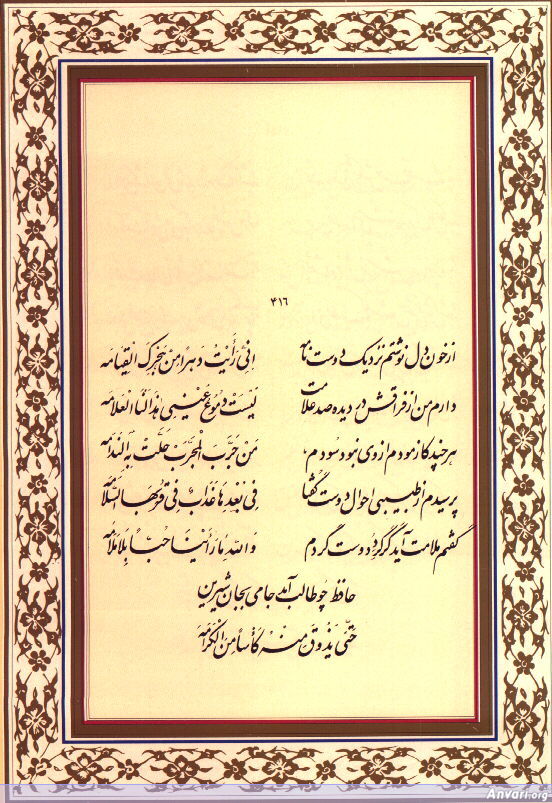 ۴۱۶
از خون دل نوشتم نزدیک دوست نامه    اِنّی رَأَیْتُ دَهْراً مِنْ هَجْرِکَ الْقِیامَه
دارم من از فراقش در دیده صد علامت    لَیْسَتْ دُمُوعُ عَیْنی هذا لَنَا الْعَلامَه
هر چند کازمودم از وی نبود سودم    مَنْ جَرَّبَ الْمُجَرَّبَ حَلَّتْ بِهِ النَّدامَه
پرسیدم از طبیبی احوال دوست گفتا    فی بُعْدِها عَذابٌ فی قُرْبِهَا السَّلامَه
گفتم ملامت آید گر گرد دوست گردم    وَاللهِ ما رَأَیْنا حُبّاً بِلا مَلامَه
حافظ چو طالب آمد جامی بجان شیرین
حَتّی یَذُوقَ مِنْهُ کَأْساً مِنَ الْکَرامَه
Anvari.org